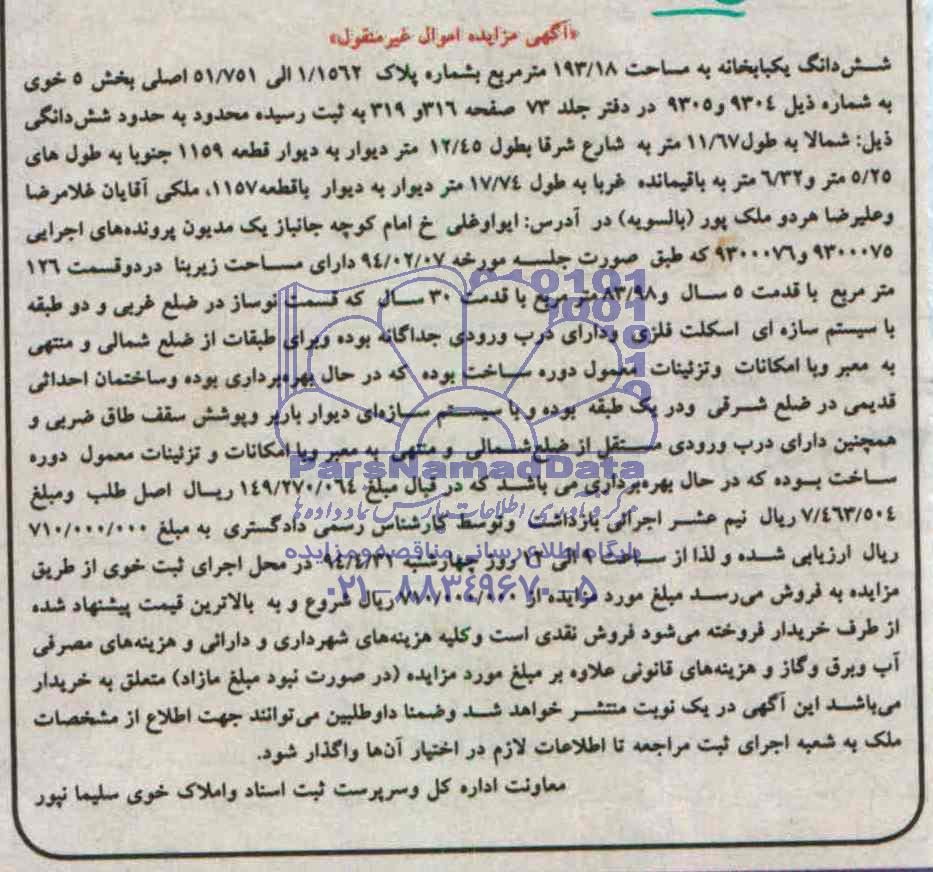 «آگهی مزایده اموال غیرمنقول»
شش‌دانگ یکبابخانه به مساحت ۱۹۳/۱۸ مترمربع بشماره پلاک ۱/۱۵۶۲ الی ۵۱/۷۵۱ اصلی بخش ۵ خوی
به شماره ذیل ۹۳۰۴ و۹۳۰۵ در دفتر جلد ۷۳ صفحه ۳۱۶و ۳۱۹ به ثبت رسیده محدود به حدود شش‌دانگی
ذیل: شمالا به طول۱۱/۶۷ متر به شارع شرقا بطول ۱۲/۴۵ متر دیوار به دیوار قطعه ۱۱۵۹ جنوبا به طول های
۵/۲۵ متر و۶/۳۲ متر به باقیمانده غربا به طول ۱۷/۷۴ متر دیوار به دیوار باقطعه۱۱۵۷، ملکی آقایان غلامرضا
وعلیرضا هردو ملک پور (بالسویه) در آدرس: ایواوغلی خ امام کوچه جانباز یک مدیون پرونده‌های اجرایی
۹۳۰۰۰۷۵ و۹۳۰۰۰۷۶ که طبق صورت جلسه مورخه ۹۴/۰۲/۰۷ دارای مساحت زیربنا دردوقسمت ۱۲۶
متر مربع با قدمت ۵ سال و۸۳/۹۸ متر مربع با قدمت ۳۰ سال که قسمت نوساز در ضلع غربی و دو طبقه
با سیستم سازه ای اسکلت فلزی ودارای درب ورودی جداگانه بوده وبرای طبقات از ضلع شمالی و منتهی
به معبر وبا امکانات وتزئینات معمول دوره ساخت بوده که در حال بهره‌برداری بوده وساختمان احداثی
قدیمی در ضلع شرقی ودر یک طبقه بوده و با سیستم سازه‌ای دیوار باربر وپوشش سقف طاق ضربی و
همچنین دارای درب ورودی مستقل از ضلع شمالی و منتهی به معبر وبا امکانات و تزئینات معمول دوره
ساخت بوده که در حال بهره‌برداری می باشد که در قبال مبلغ ۱۴۹/۲۷۰/۰۶۴ ریال اصل طلب ومبلغ
۷/۴۶۳/۵۰۴ ریال نیم عشر اجرائی بازداشت وتوسط کارشناس رسمی دادگستری به مبلغ ۷۱۰/۰۰۰/۰۰۰
ریال ارزیابی شده و لذا از ساعت ۹ الی ۱۲ روز چهارشنبه ۹۴/۴/۳۱ در محل اجرای ثبت خوی از طریق
مزایده به فروش می‌رسد مبلغ مورد مزایده از ۷۱۰/۰۰۰/۰۰۰ ریال شروع و به بالاترین قیمت پیشنهاد شده
از طرف خریدار فروخته می‌شود فروش نقدی است وکلیه هزینه‌های شهرداری و دارائی و هزینه‌های مصرفی
آب وبرق وگاز و هزینه‌های قانونی علاوه بر مبلغ مورد مزایده (در صورت نبود مبلغ مازاد) متعلق به خریدار
می‌باشد این آگهی در یک نوبت منتشر خواهد شد وضمنا داوطلبین می‌توانند جهت اطلاع از مشخصات
ملک به شعبه اجرای ثبت مراجعه تا اطلاعات لازم در اختیار آن‌ها واگذار شود.
معاونت اداره کل وسرپرست ثبت اسناد واملاک خوی سلیما نپور
ParsNamadData
مرکز فرآوری اطلاعات پارس نماد داده‌ها
پایگاه اطلاع رسانی مناقصه و مزایده
۰۲۱-۸۸۳۴۹۶۷۰-۵